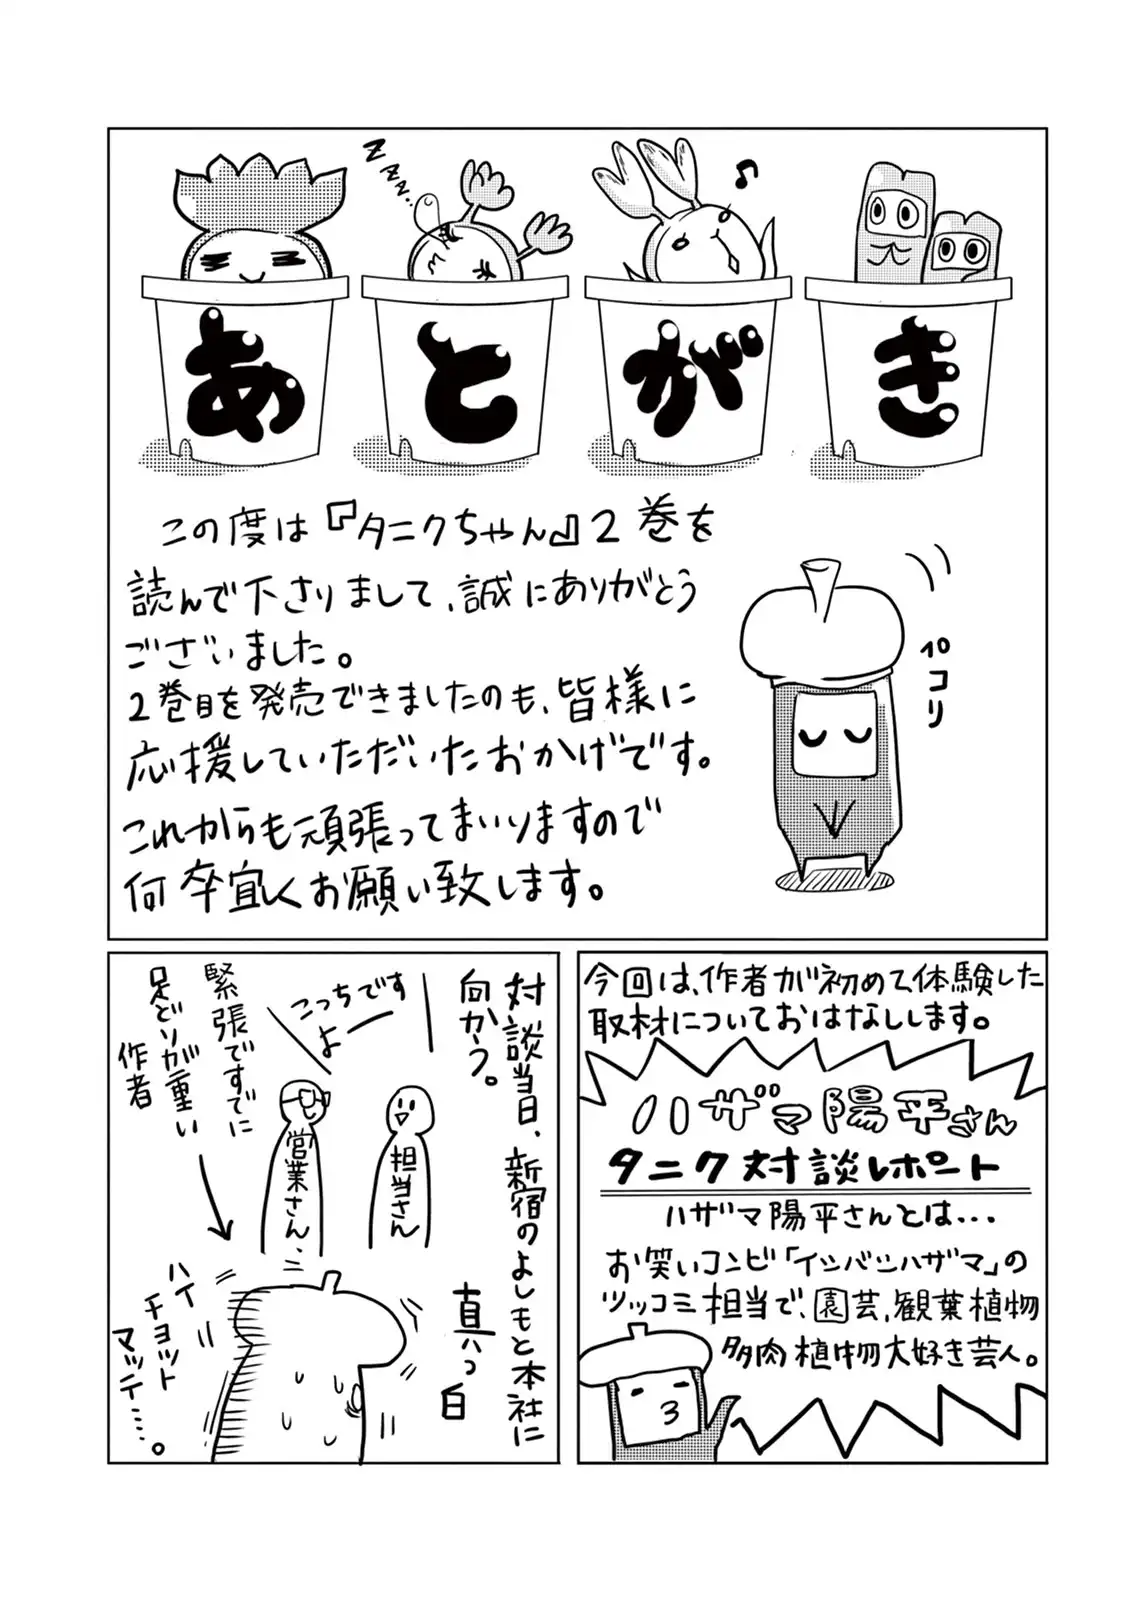 ZZZ...
♪
あとがき
この度は『タニクちゃん』2巻を
読んで下さりまして、誠にありがとう
ございました。
2巻目を発売できましたのも、皆様に
応援していただいたおかげです。
これからも頑張ってまいりますので
何卒宜しくお願い致します。
ペコリ
今回は、作者が初めて体験した
取材についておはなしします。
ハザマ陽平さん
タニク対談レポート
ハザマ陽平さんとは...
お笑いコンビ「イシバシハザマ」の
ツッコミ担当で、園芸、観葉植物
多肉植物大好き芸人。
対談当日、新宿のよしもと本社に
向かう。
こっちです
よー
担当さん
営業さん
緊張ですでに
足どりが重い
作者
真っ白
ハイ
チョット
マッテ……。